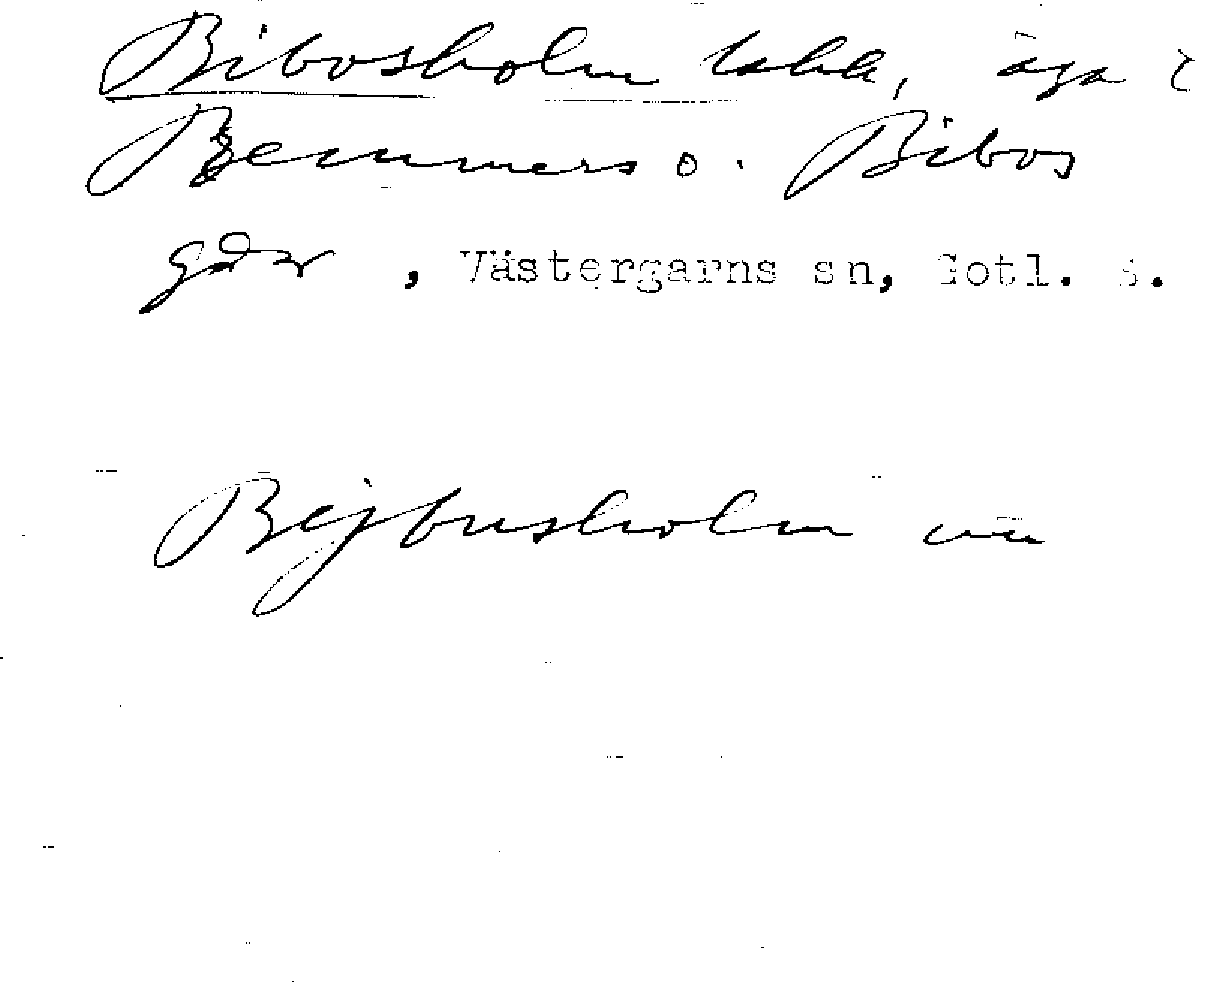 Bibosholm lokk, äga i
Bemmers o. Bibos
gdr, Västergarns sn, Gotl. S.
Bejbusholm